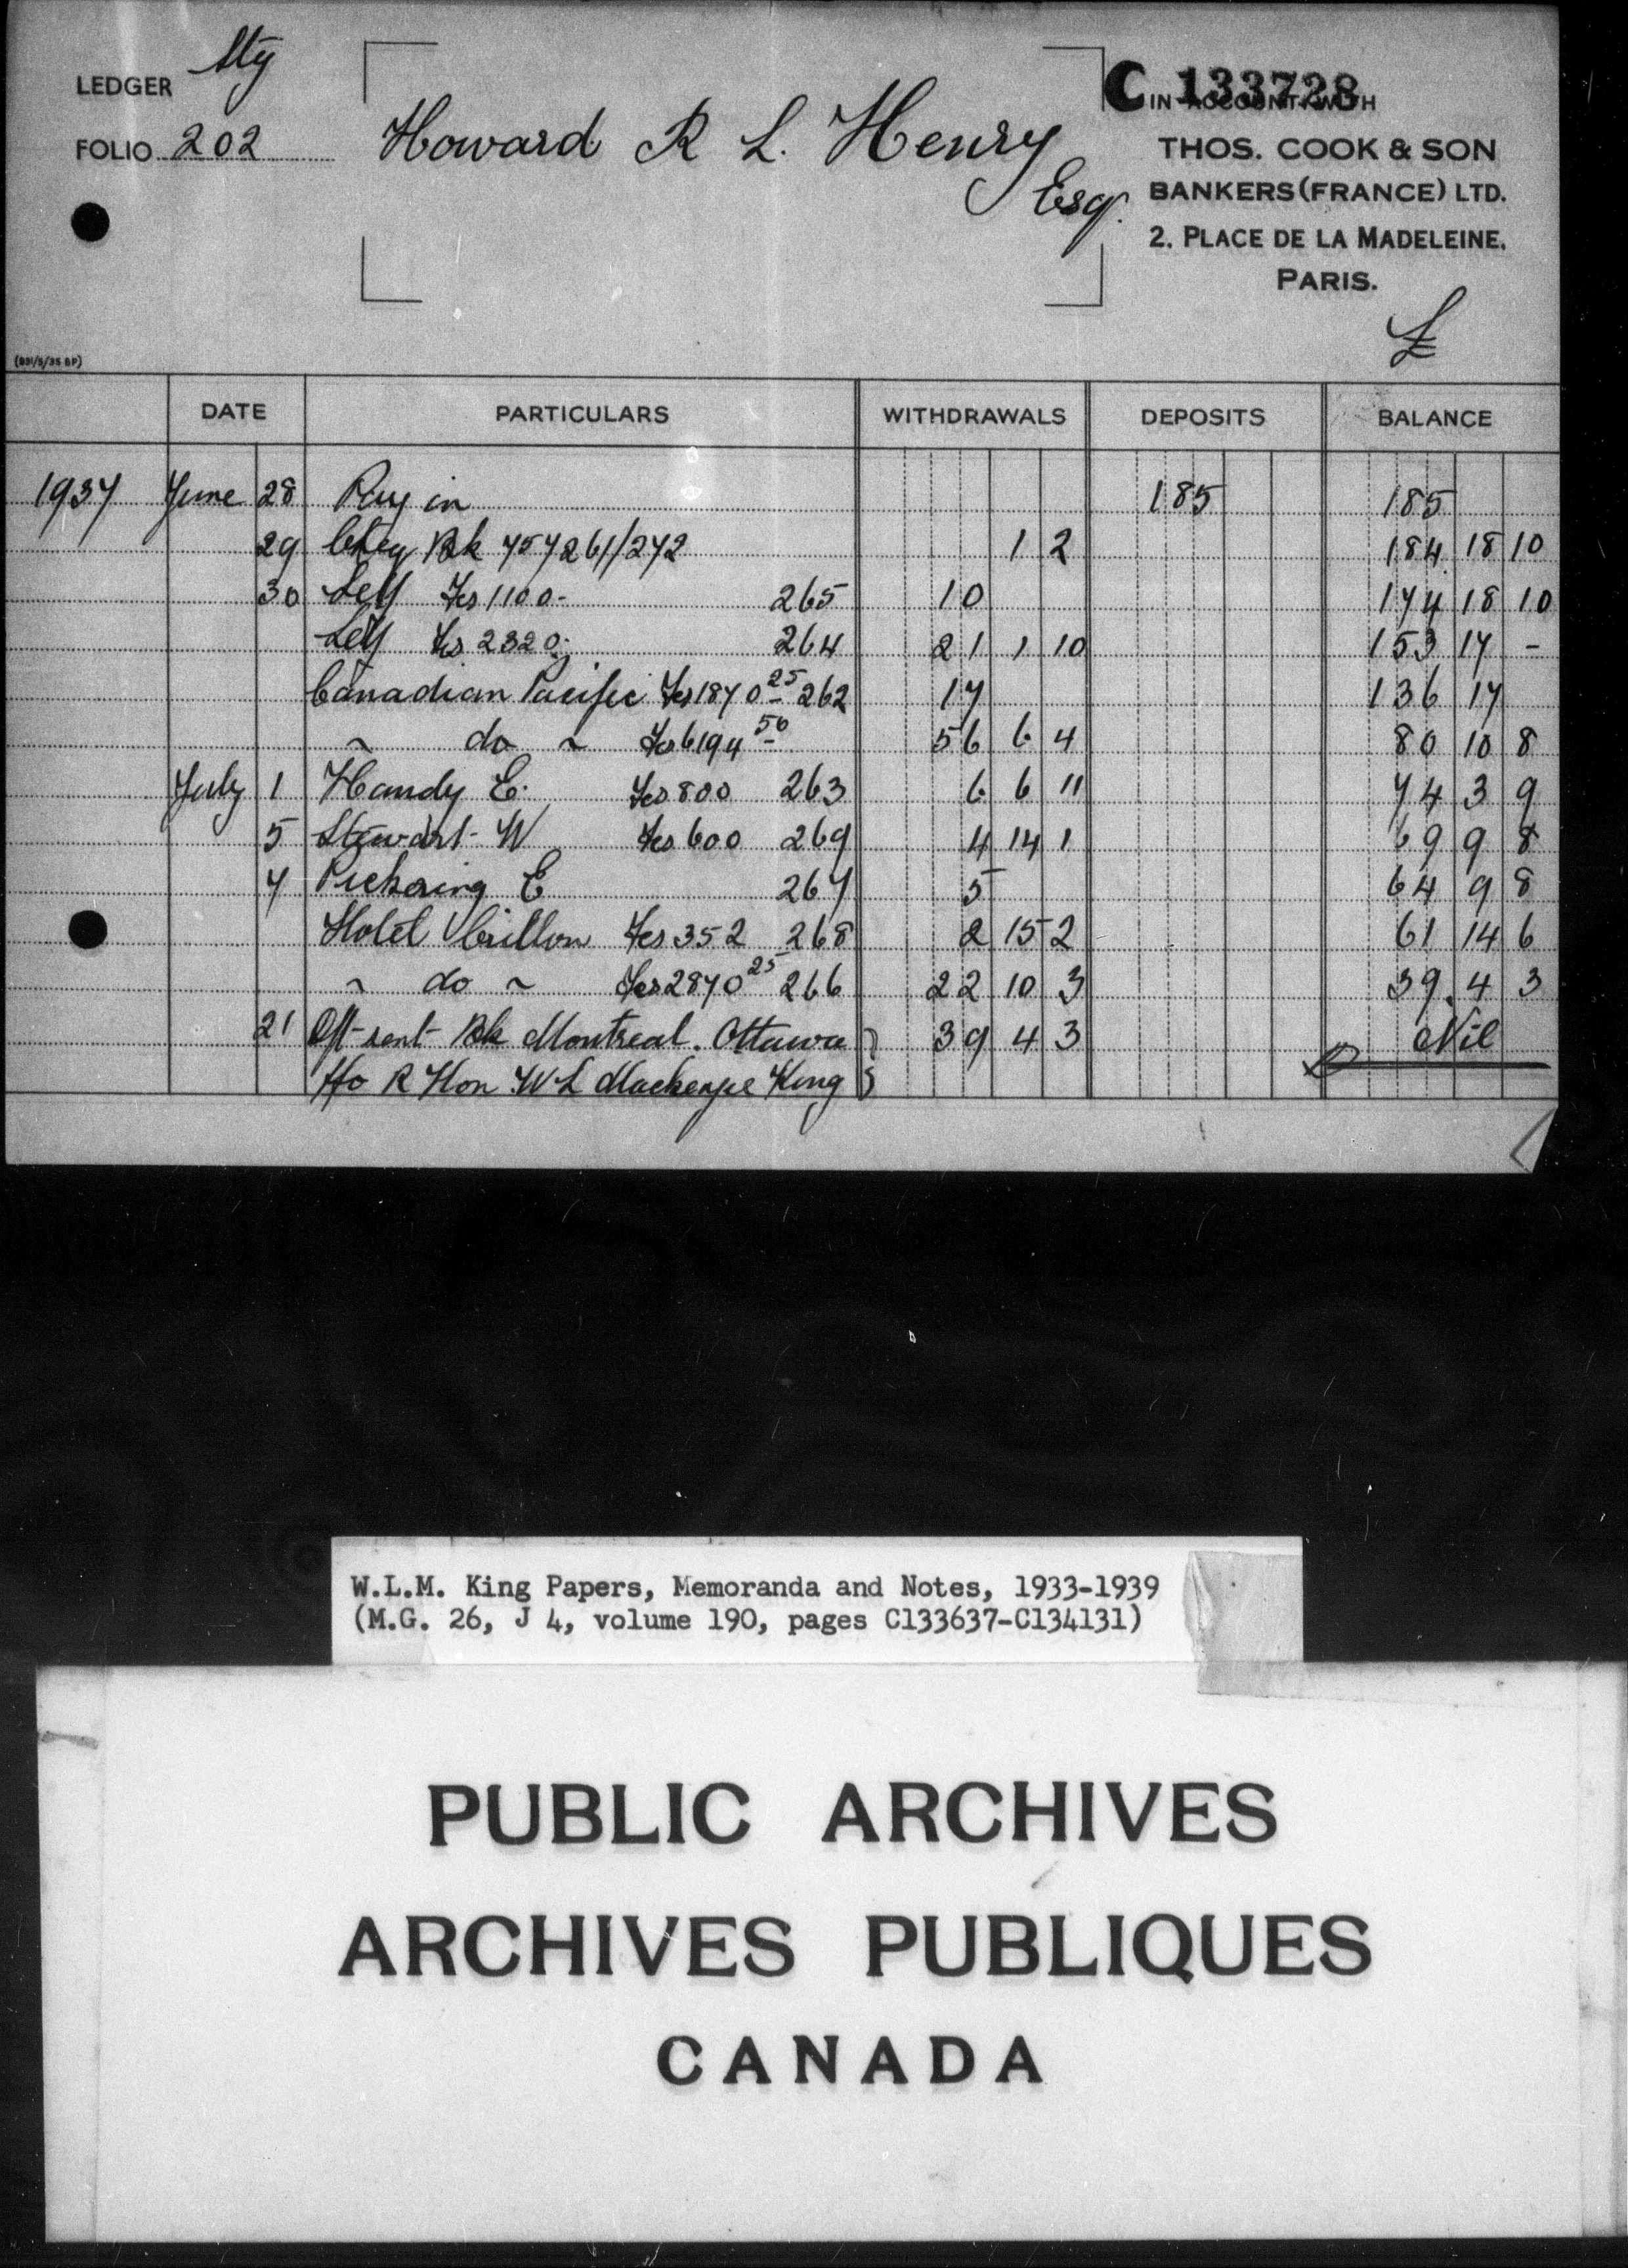 LEDGER Stg
FOLIO 202
Howard R L. Henry
Esq.
C 133728
IN ACCOUNT WITH
THOS. COOK & SON
BANKERS (FRANCE) LTD.
2, PLACE DE LA MADELEINE,
PARIS.
£
DATE PARTICULARS WITHDRAWALS DEPOSITS BALANCE
1937 June 28 Pay in 185 185
29 Cheq Bk 757261/272 1 2 184 18 10
30 Self Fcs 1100- 265 10 174 18 10
Self Fcs 2320- 264 21 1 10 153 17 -
Canadian Pacific Fcs 1870 25 262 17 136 17
~ do ~ Fcs 6194 50 56 6 4 80 10 8
July 1 Handy E. Fcs 800 263 6 6 11 74 3 9
5 Stewart W Fcs 600 269 4 14 1 69 9 8
7 Pickering E 267 5 64 9 8
Hotel Crillon Fcs 352 268 2 15 2 61 14 6
~ do ~ Fcs 2870 25 266 22 10 3 39 4 3
21 Dft sent Bk Montreal. Ottawa 39 4 3 Nil
f/o R Hon W L Mackenzie King
W.L.M. King Papers, Memoranda and Notes, 1933-1939
(M.G. 26, J 4, volume 190, pages C133637-C134131)
PUBLIC ARCHIVES
ARCHIVES PUBLIQUES
CANADA